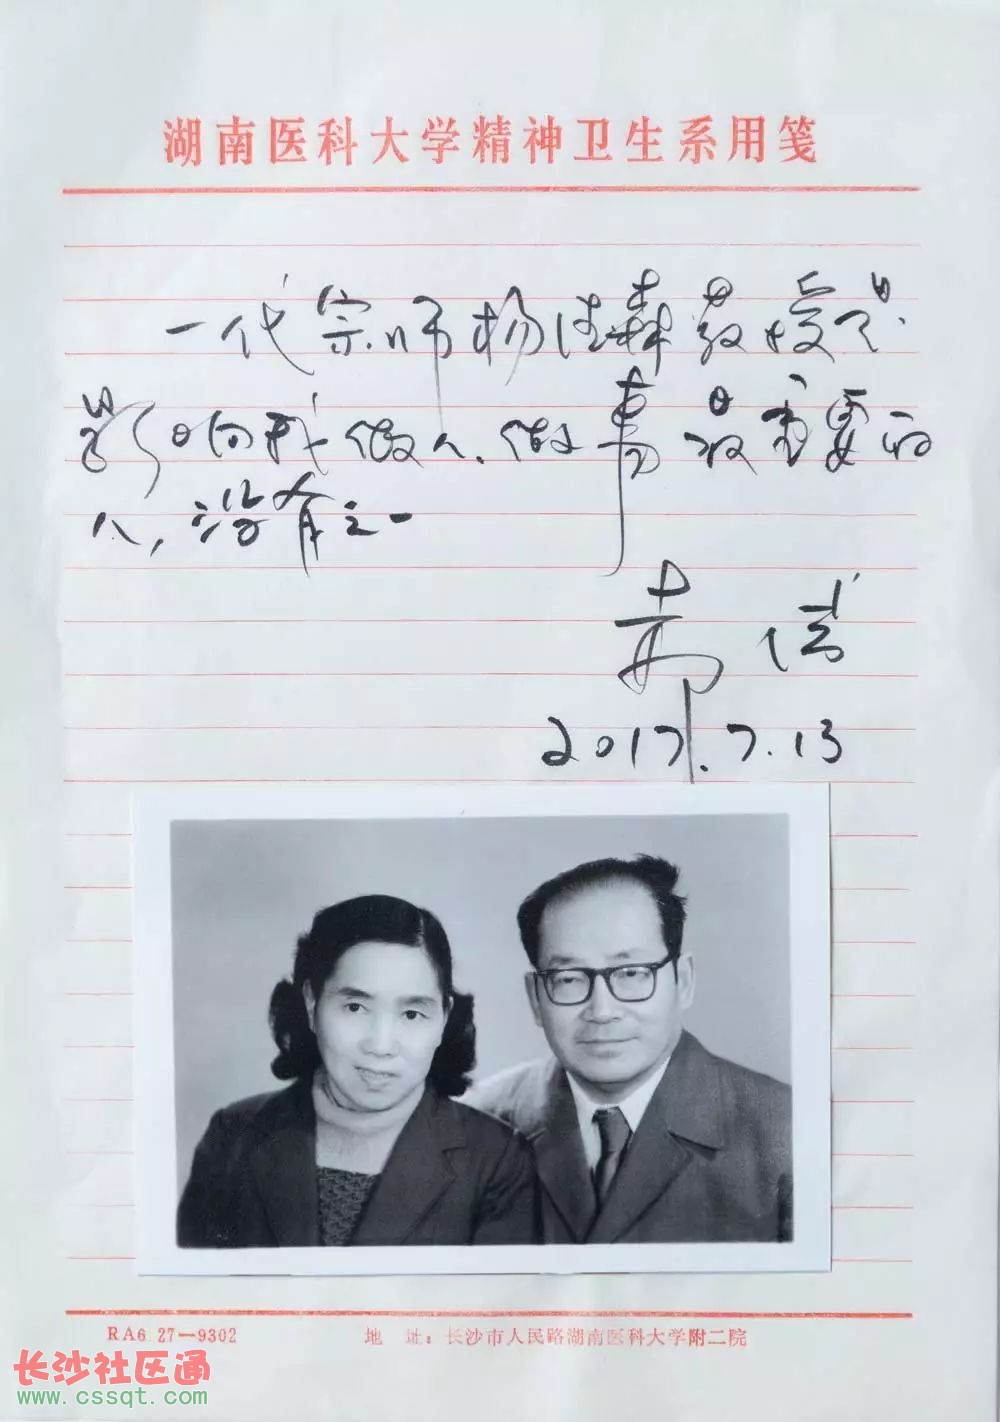 湖南医科大学精神卫生系用笺
一代宗师杨德森教授是
影响我做人、做事最重要的
人，没有之一
2017.7.13
RA6 27—9302 地 址：长沙市人民路湖南医科大学附二院
长沙社区通
www.cssqt.com